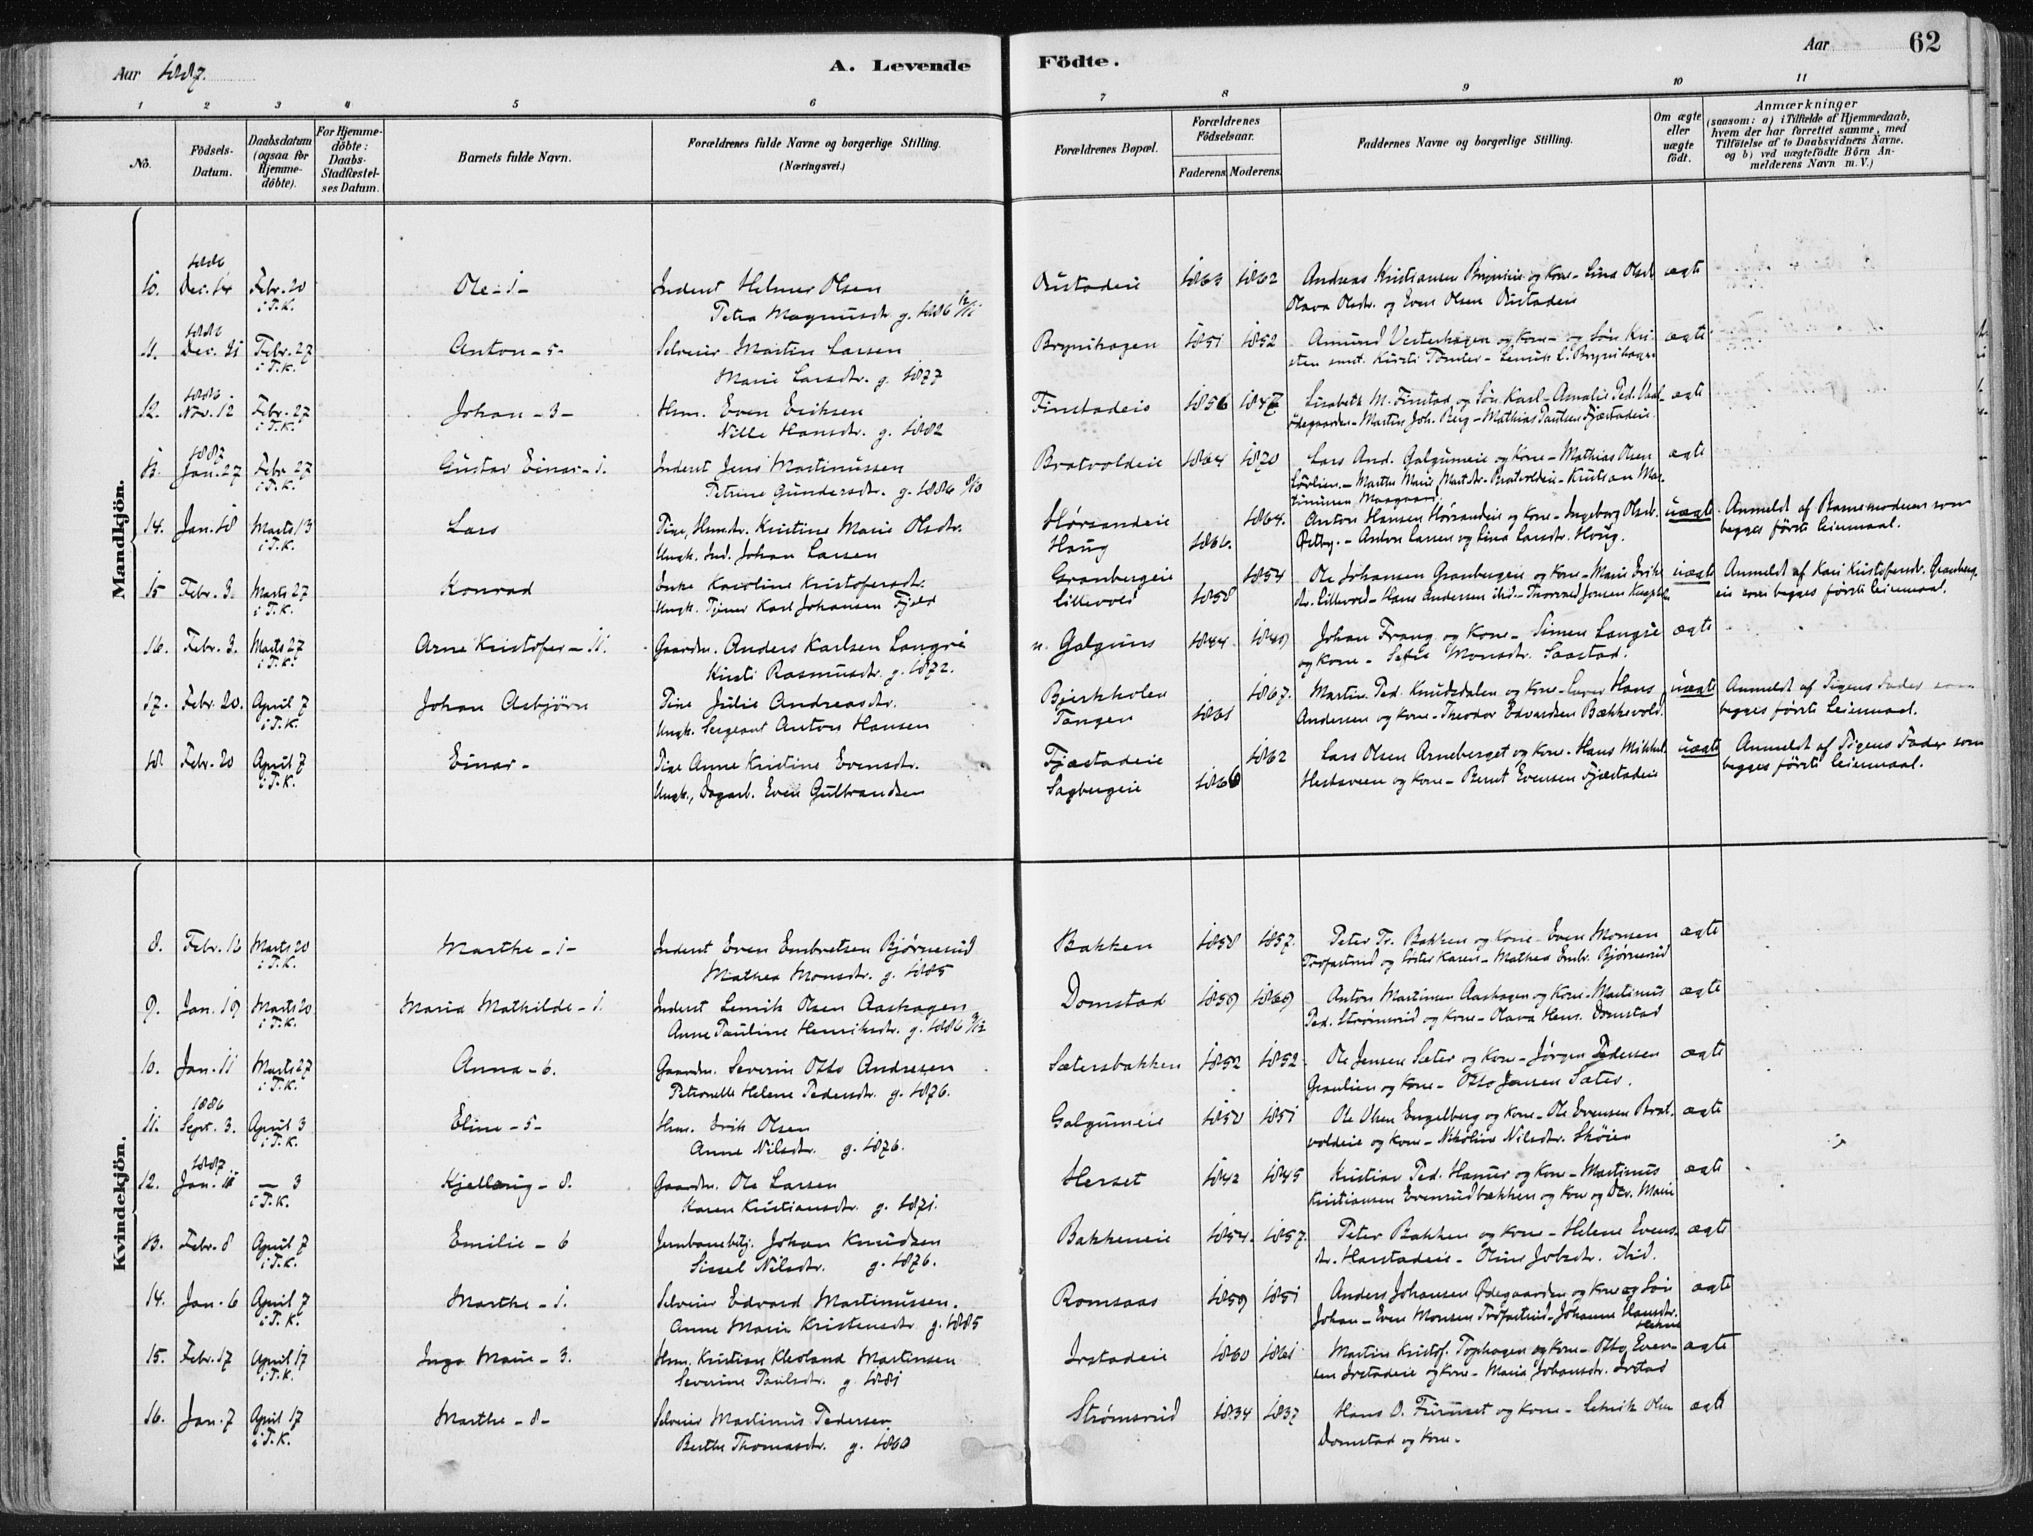 Aar 1887.
A. Levende Födte.
Aar
62
1 2 3 4 5 6 7 8 9 10 11
Nô.
Födsels-Datum.
Daabsdatum (ogsaa for Hjemme-döbte).
For Hjemme-döbte: Daabs-Stadfæstel-ses Datum.
Barnets fulde Navn.
Forældrenes fulde Navne og borgerlige Stilling. (Næringsvei.)
Forældrenes Bopæl.
Forældrenes Födselsaar.
Faderens. Moderens.
Faddernes Navne og borgerlige Stilling.
Om ægte eller uægte födt.
Anmærkninger (saasom: a) i Tilfælde af Hjemmedaab, hvem der har forrettet samme, med Tilföielse af to Daabsvidners Navne. og b) ved uægtefödte Börn An-melderens Navn m. V.)
Mandkjön.
10. 1886 Dec. 14 Febr. 20 i T.K. Ole - 1 - Inderst Helmer Olsen Oustadeie 1863 1862 Andreas Kristiansen Brynieie og Kone - Lina Olsdr. ægte
Petra Magnusdr. g. 1886 Olava Olsdr. og Even Olsen Oustadeie
11. 1886 Dec. 21 Febr. 27 i T.K. Anton - 5 - Selveier Martin Larsen Brynihagen 1851 1852 Amund Vesterhagen og Kone - og Søn Kri- ægte
Marie Larsdr. g. 1877 sten smst. Kirsti Tomter - Brynihagen
12. 1886 Nov. 12 Febr. 27 i T.K. Johan - 3 - Hsm. Even Eriksen Finstadeie 1856 1847 Lisabeth M. Finstad og Søn Karl - Amalie Ped. ægte
Nille Hansdr. g. 1882 Ødegaarden - Martin Joh. Berg - Mathias Paulsen Fjæstadeie
13. 1887 Jan. 27 Febr. 27 i T.K. Gustav Einar - 1. Inderst Jens Martinussen Bratvoldeie 1864 1870 Lars And. Galgumeie og Kone - Mathias Olsen ægte
Petrine Gundersdr. g. 1886 Løvlien. - Marthe Marie Bratvoldeie - Kristian Mar-
tinussen Maagaard
14. Jan. 18 Marts 13 i T.K. Lars Pige, Hsmdtr. Kristine Marie Olsdtr. Hørsandeie 1864. Anton Hansen Hørsandeie og Kone - Ingeborg Olsdr. uægte Anmeldt af Barnemoderen som
Ungk. Ind. Johan Larsen Haug 1866. Østby. - Anton Larsen og Lina Larsdr. Houg. begges første Leiermaal.
15 Febr. 3. Marts 27 i T.K. Konrad Enke Karoline Kristofersdr. Granbergeie 1854 Ole Johansen Granbergeie og Kone - Marie Eriks- uægte Anmeldt af Kari Kristofersdr. Granberg-
Ungk. Tjener Karl Johansen Fjeld Lillevold 1858 dr. Lillevold - Hans Andersen ibid. - Thorvald Jensen eie som begges første Leiermaal.
16. Febr. 3. Marts 27 i T.K. Arne Kristofer - 11. Gaardm. Anders Karlsen Langsæ n. Galguns 1844 1849 Johan Frang og Kone - Simen Langsæ ægte
Kirsti Rasmusdr. g. 1872. og Kone - Sofie Monsdr. Saastad.
17. Febr. 20. April 7 i T.K. Johan Asbjørn Pige Julie Andreasdr. Bjerkholen 1867. Martin Ped. Knudsdalen og Kone - Hans uægte Anmeldt af Pigens Fader som
Ungk. Sergeant Anton Hansen Tangen 1861 Andersen og Kone - Theodor Edvardsen Bækkevold. begges første Leiermaal.
18 Febr. 20 April 7 i T.K. Einar - Pige Anne Kristine Evensdr. Fjæstadeie 1862 Lars Olsen Arneberget og Kone - Hans Mikkel uægte Anmeldt af Pigens Fader som
Ungk., Dagarb. Even Gulbrandsen Sagbergeie 1866 Hestsveen og Kone - Bernt Evensen Fjæstadeie begges første Leiermaal.
Kvindekjön.
8. Febr. 12 Marts 20 i T.K. Marthe - 1 - Inderst Even Embretsen Bjørnerud Bakken 1858 1857. Peter Tr. Bakken og Kone - Even Monsen ægte
Mathea Monsdr. g. 1885 Trøfastrud og Søster Karen - Mathea Embr. Bjørnerud
9. Jan. 19 Marts 20 i T.K. Maria Mathilde - 1. Inderst Lenrik Olsen Aashagen Domstad 1859 1869 Anton Martinsen Aashagen og Kone - Martinus ægte
Anne Pauline Henriksdr. g. 1886 Ped. Strømsrud og Kone - Olava Hens. Domstad
10. Jan. 11 Marts 27 i T.K. Anna - 6. Gaardm. Severin Otto Andresen Sætersbakken 1852 1852. Ole Jensen Sæter og Kone - Jørgen Pedersen ægte
Petronelle Helene Pedersdr. g. 1876. Graulien og Kone - Otto Jensen Sæter.
11. 1886 Sept. 3. April 3 i T.K. Eline - 5 - Hsm. Erik Olsen Galgumeie 1850 1851 Ole Olsen Engelberg og Kone - Ole Evensen Brat- ægte
Anne Nilsdr. g. 1876. voldeie og Kone - Nikoline Nilsdr. Skøien
12. 1887 Jan. 11 — 3 i T.K. Kjellaug - 8. Gaardm. Ole Larsen Herset 1842 1845 Kristian Ped. Hammer og Kone - Martinus ægte
Karen Kristiansdr. g. 1871. Kristiansen Evensrudbækken og Kone og Dtr. Marie
13. Febr. 8 April 7 i T.K. Emilie - 6 Jernbanebetj. Johan Knudsen Bakkeneie 1854. 1857. Peter Bakken og Kone - Helene Evens- ægte
Sissel Nilsdr. g. 1876. dr. Harstadeie - Oline Jobsdr. ibid.
14. Jan. 6 April 7 i T.K. Marthe - 1. Selveier Edvard Martinussen. Romsaas 1859 1851 Anders Johansen Ødegaarden og Kone og Søn ægte
Anne Marie Kristensdr. g. 1885 Johan - Even Monsen Trøfastrud - Johanne Hansdr.
15. Febr. 17 April 17 i T.K. Inga Marie - 3. Hsm. Kristian Kleoland Martinsen Irstadeie 1860 1861 Martin Kristof. Tophagen og Kone - Otto Even- ægte
Severine Paulsdr. g. 1881 sen Irstadeie og Kone - Maria Johansdr. Irstad
16. Jan. 7 April 17 i T.K. Marthe - 8 - Selveier Martinus Pedersen Strømsrud 1834 1837 Hans O. Furuset og Kone - Lenrik Olsen ægte
Berthe Thomasdr. g. 1860 Domstad og Kone -